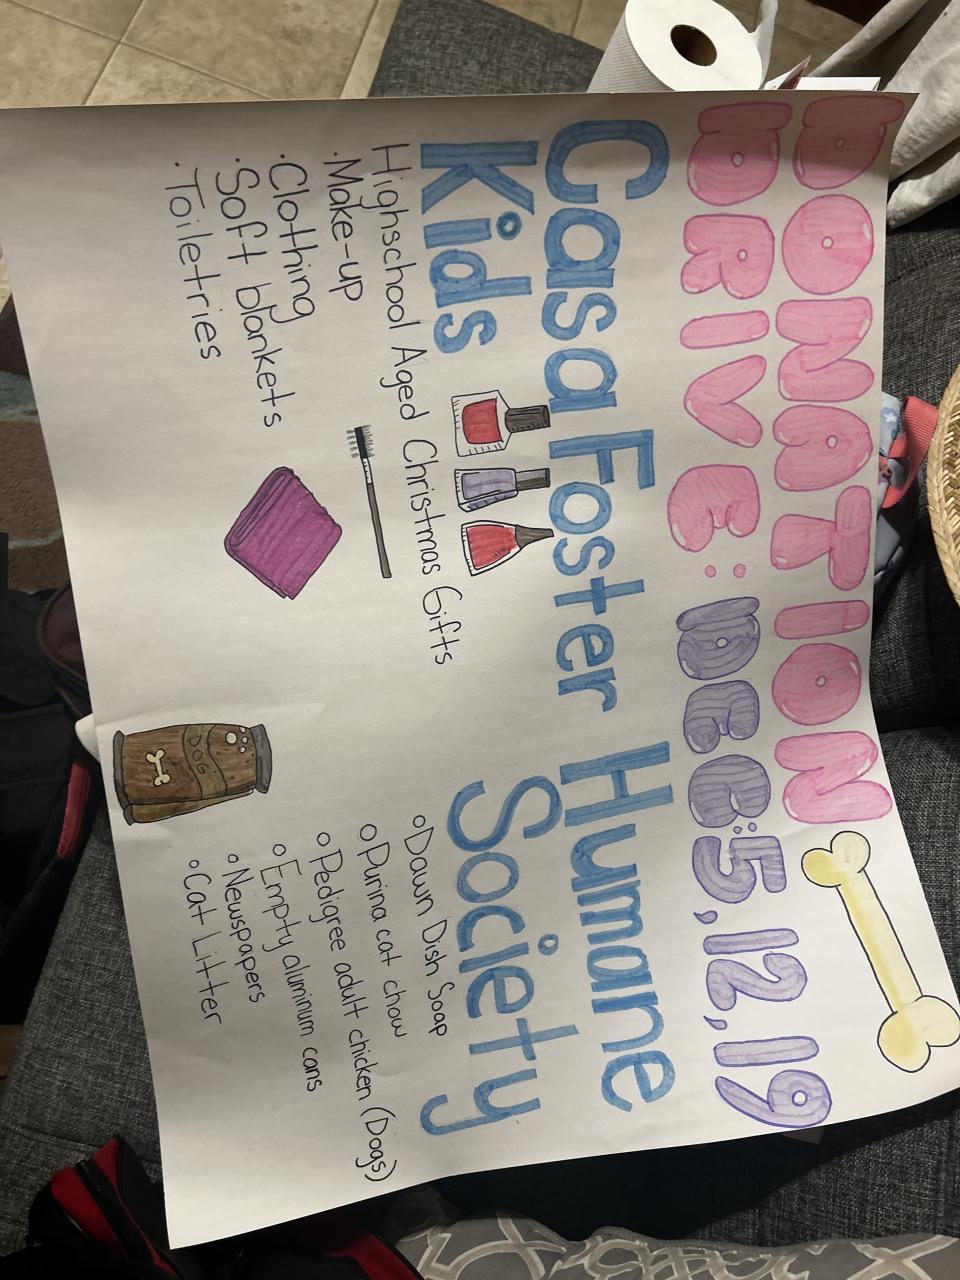 DONATION
DRIVE: DEC:5,12,19
Casa Foster
Kids
Highschool Aged Christmas Gifts
·Make-up
·Clothing
·Soft blankets
·Toiletries
Humane
Society
○Dawn Dish Soap
○Purina cat chow
○Pedigree adult chicken (Dogs)
○Empty aluminium cans
○Newspapers
○Cat Litter
DOG